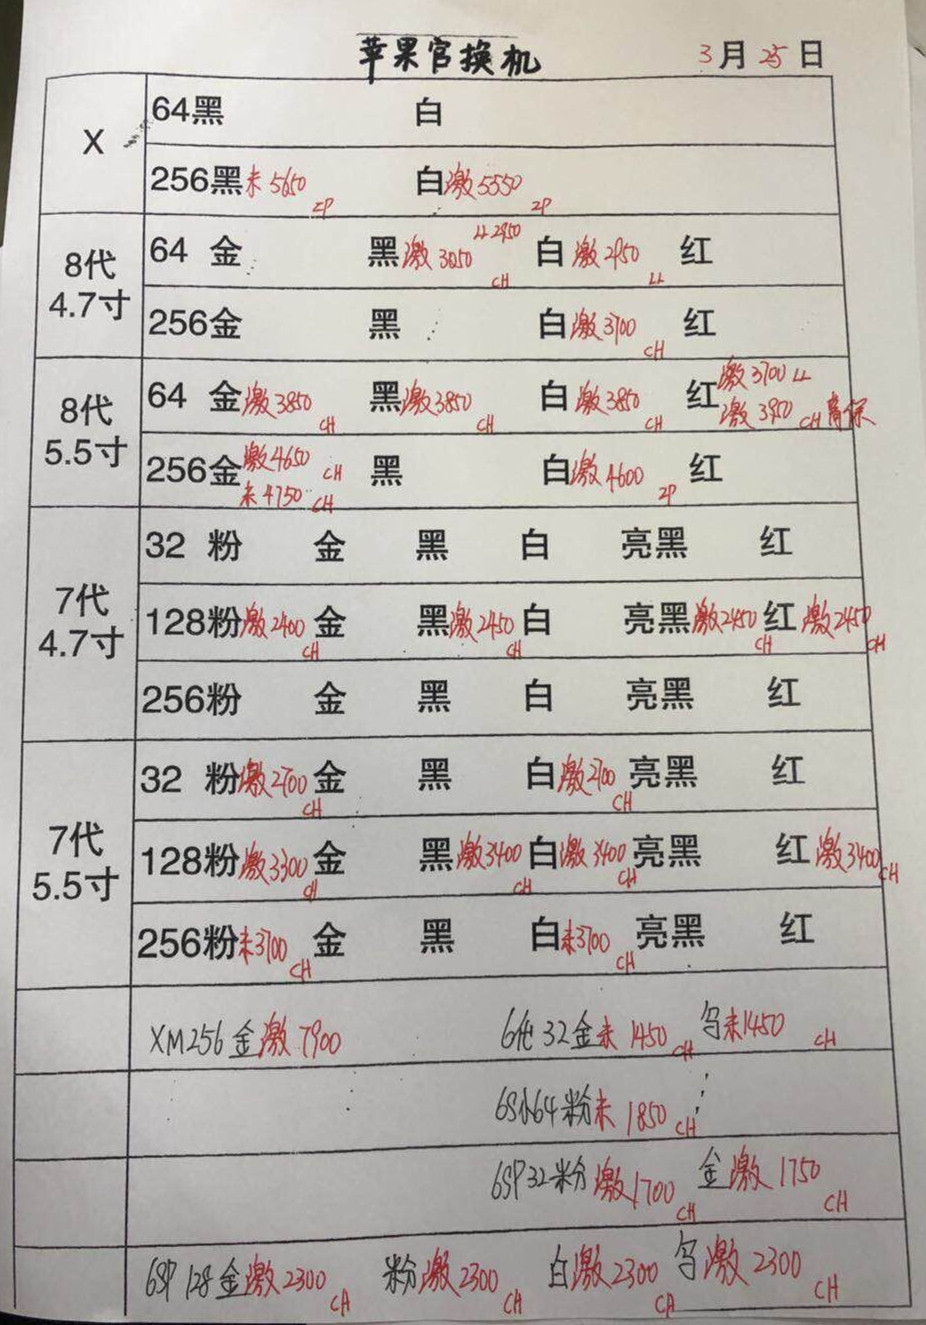 苹果官换机 3月25日
X
64黑 白
256黑未5650 ZP 白激5550 ZP
8代
4.7寸
64 金 黑激3050 CH LL2950 白激2950 LL 红
256金 黑 白激3700 CH 红
8代
5.5寸
64 金激3850 CH 黑激3850 CH 白激3850 CH 红激3700 LL
激3950 CH 有保
256金激4650 CH 黑 白激4600 ZP 红
未4750 CH
7代
4.7寸
32 粉 金 黑 白 亮黑 红
128粉激2400 CH 金 黑激2450 CH 白 亮黑激2450 CH 红激2450 CH
256粉 金 黑 白 亮黑 红
7代
5.5寸
32 粉激2700 CH 金 黑 白激2700 CH 亮黑 红
128粉激3300 CH 金 黑激3400 CH 白激3400 CH 亮黑 红激3400 CH
256粉未3700 CH 金 黑 白未3700 CH 亮黑 红
XM256金激7900 6代32金未1450 CH 未1450 CH
6S小64粉未1850 CH
6SP32粉激1700 CH 金激1750 CH
6SP 128金激2300 CH 粉激2300 CH 白激2300 CH 激2300 CH